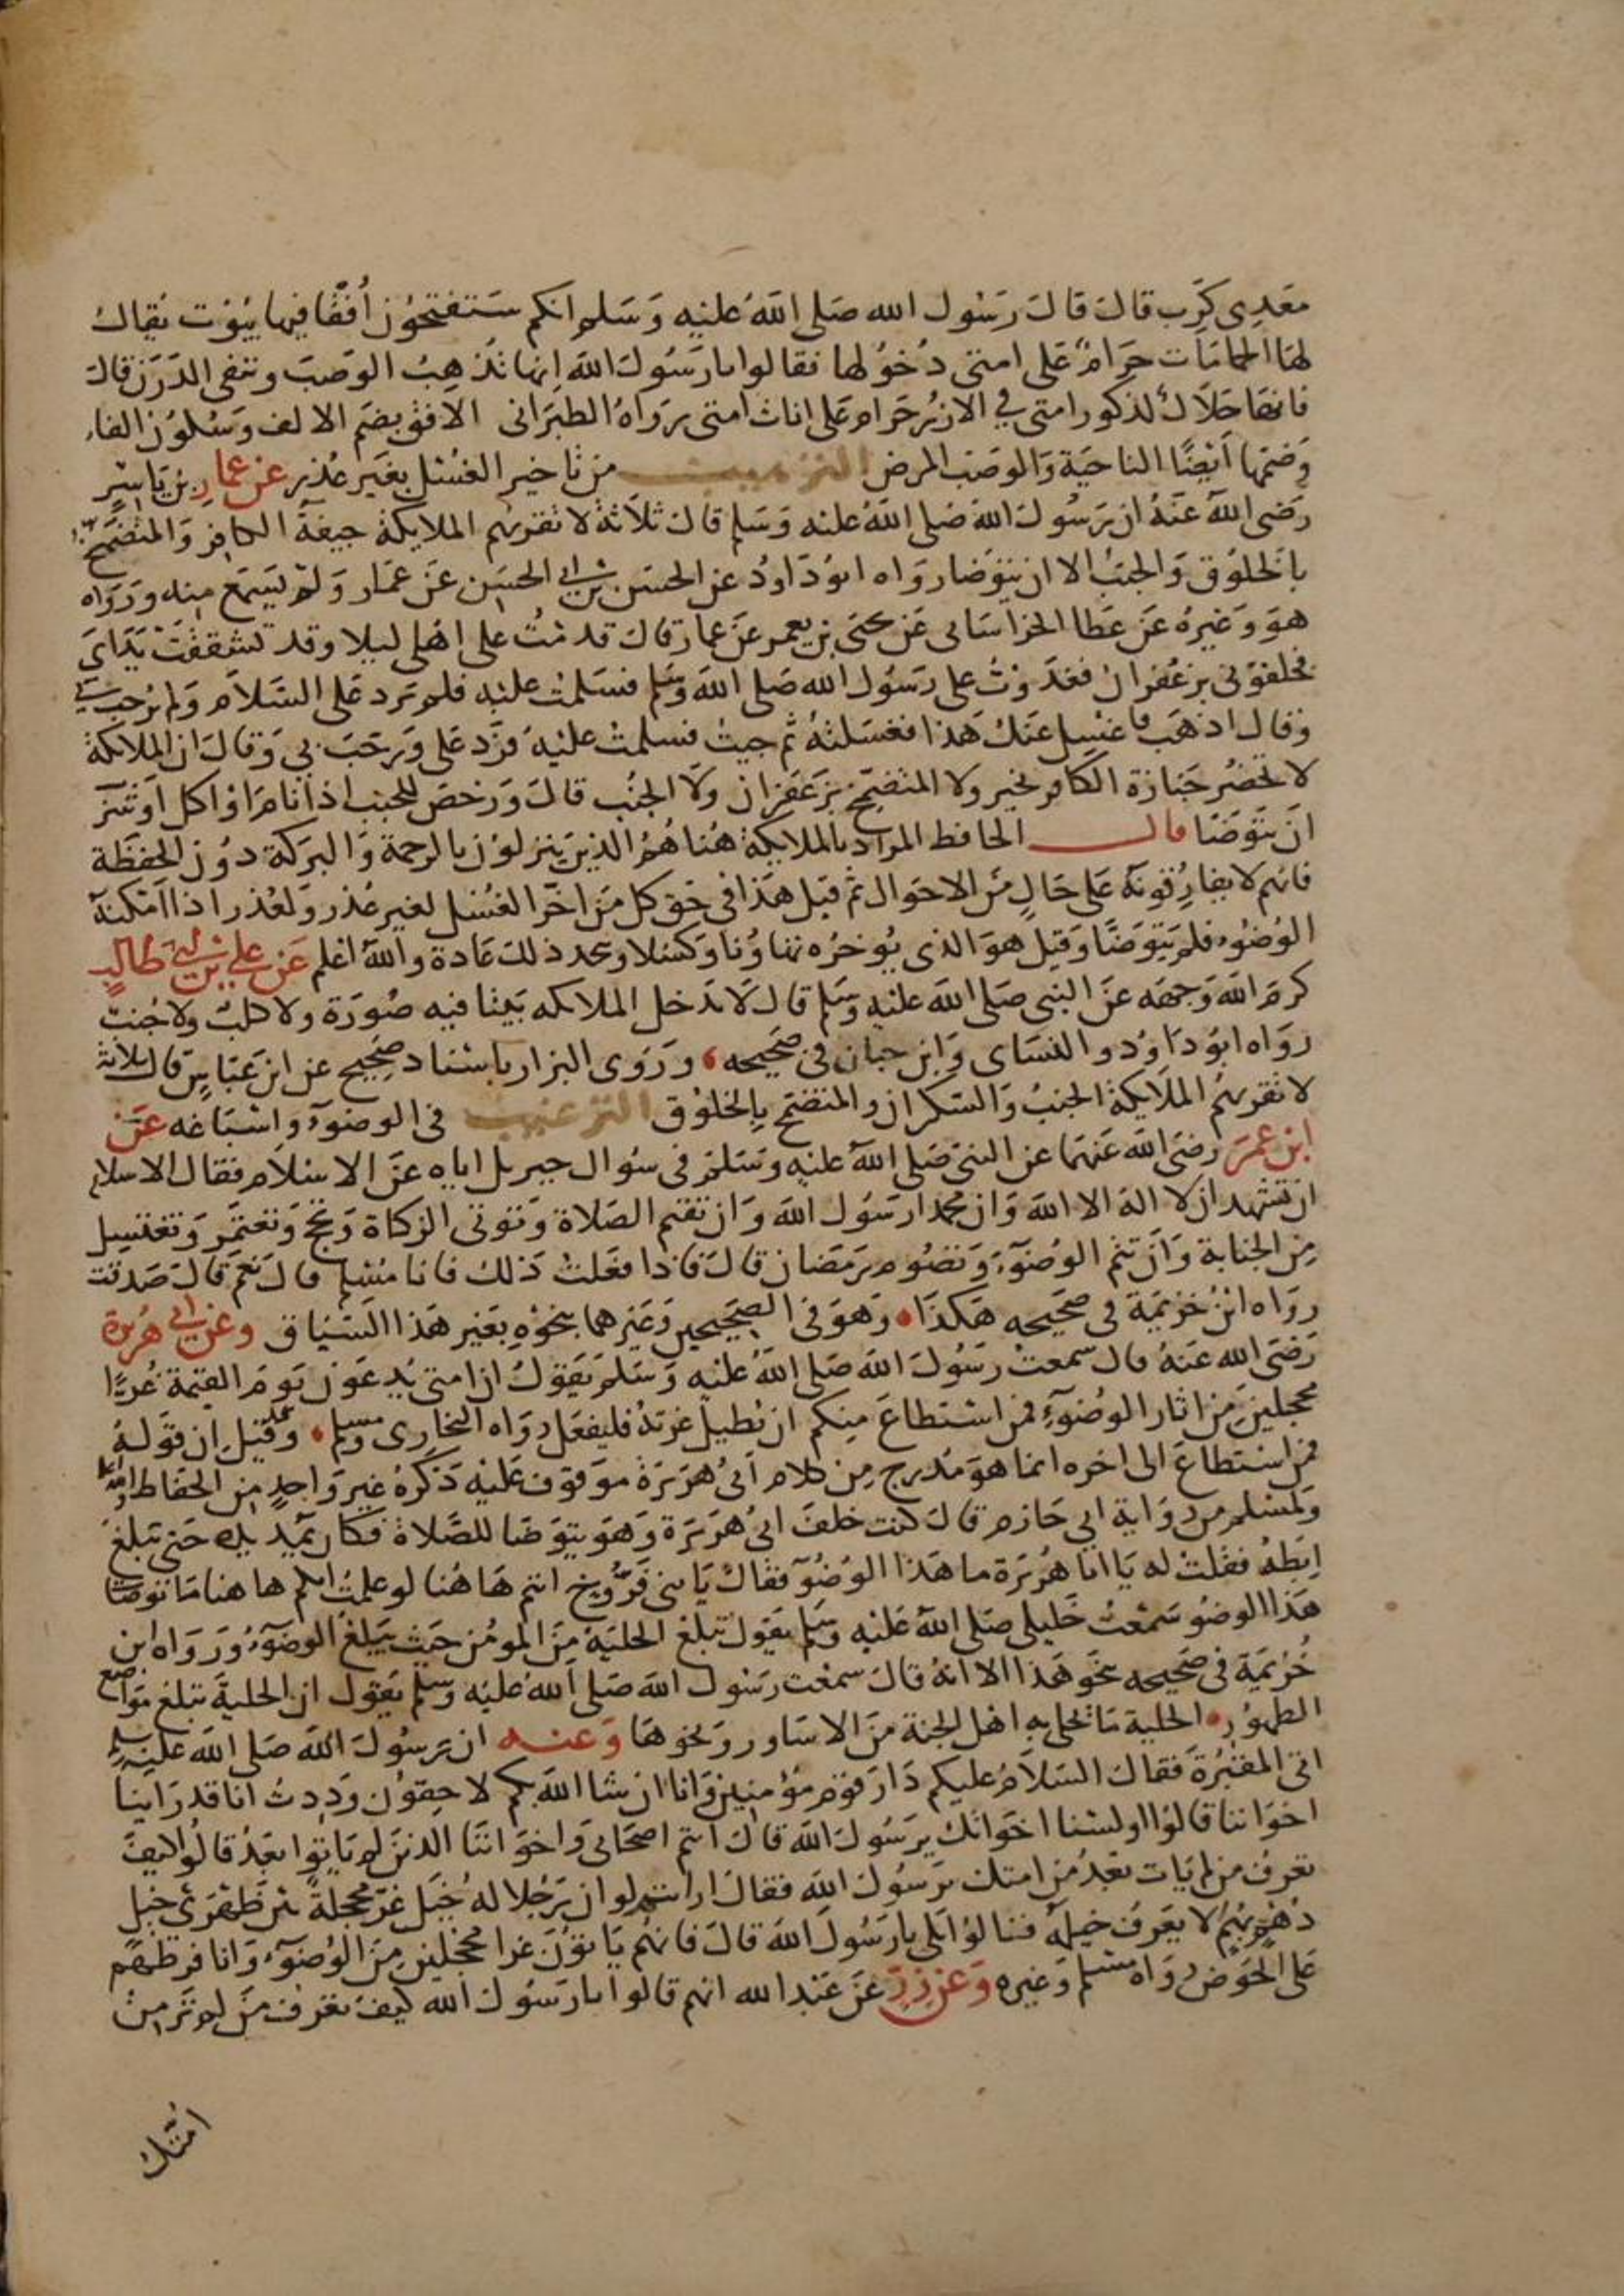 معدى كرب قال قال رسول الله صلى الله عليه وسلم انكم ستفتحون أفقا فيها بيوت يقال
لها الحمامات حرام على امتى دخولها فقالوا يا رسول الله انها تذهب الوصب وتنقى الدرن قال
فانها حلال لذكور امتى في الازر حرام على اناث امتى رواه الطبرانى الافق بضم الالف وسكون الفاء
وضمها أيضا الناحية والوصب المرض الترهيب من تاخير الغسل بغير عذر عن عمار بن ياسر
رضى الله عنه ان رسول الله صلى الله عليه وسلم قال ثلاثة لا تقربهم الملايكة جيفة الكافر والمتضمخ
بالخلوق والجنب الا ان يتوضا رواه ابو داود عن الحسن بن ابي الحسن عن عمار ولم يسمع منه ورواه
هو وغيره عن عطا الخراسانى عن يحيى بن يعمر عن عمار قال قدمت على اهلى ليلا وقد تشققت يداى
فخلقونى بزعفران فغدوت على رسول الله صلى الله وسلم فسلمت عليه فلم يرد على السلام ولم يرحب بي
وقال اذهب فاغسل عنك هذا فغسلته ثم جيت فسلمت عليه فرد على ورحب بي وقال ان الملايكة
لا تحضر جنازة الكافر بخير ولا المتضمخ بزعفران ولا الجنب قال ورخص للجنب اذا نام او اكل او شرب
ان يتوضا قال الحافظ المراد بالملايكة هنا هم الذين ينزلون بالرحمة والبركة دون الحفظة
فانهم لا يفارقونه على حال من الاحوال ثم قيل هذا فى حق كل من اخر الغسل لغير عذر ولعذر اذا امكنه
الوضوء فلم يتوضا وقيل هو الذى يوخره تهاونا وكسلا ويتخذ ذلك عادة والله اعلم عن على بن ابى طالب
كرم الله وجهه عن النبى صلى الله عليه وسلم قال لا تدخل الملايكه بيتا فيه صورة ولا كلب ولا جنب
رواه ابو داود والنساى وابن حبان فى صحيحه وروى البزار باسناد صحيح عن ابن عباس قال ثلاثة
لا تقربهم الملايكة الجنب والسكران والمتضمخ بالخلوق الترغيب فى الوضوء واسباغه عن
ابن عمر رضى الله عنهما عن النبى صلى الله عليه وسلم فى سوال جبريل اياه عن الاسلام فقال الاسلام
ان تشهد ان لا اله الا الله وان محمدا رسول الله وان تقيم الصلاة وتوتى الزكاة وتحج وتعتمر وتغتسل
من الجنابة وان تتم الوضوء وتصوم رمضان قال فاذا فعلت ذلك فانا مسلم قال نعم قال صدقت
رواه ابن خزيمة فى صحيحه هكذا وهو فى الصحيحين وغيرهما بنحوه بغير هذا السياق وعن ابي هريرة
رضى الله عنه قال سمعت رسول الله صلى الله عليه وسلم يقول ان امتى يدعون يوم القيمة غرا
محجلين من اثار الوضوء فمن استطاع منكم ان يطيل غرته فليفعل رواه البخارى ومسلم وقد قيل ان قوله
فمن استطاع الى اخره انما هو مدرج من كلام أبى هريرة موقوف عليه ذكره غير واحد من الحفاظ والله اعلم
ولمسلم من رواية ابي حازم قال كنت خلف ابى هريرة وهو يتوضا للصلاة فكان يمد يده حتى تبلغ
ابطه فقلت له يا ابا هريرة ما هذا الوضوء فقال يا بنى فروخ انتم هاهنا لو علمت انكم هاهنا ما توضات
هذا الوضو سمعت خليلى صلى الله عليه وسلم يقول تبلغ الحلية من المومن حيث يبلغ الوضوء ورواه ابن
خزيمة فى صحيحه بنحو هذا الا انه قال سمعت رسول الله صلى الله عليه وسلم يقول ان الحلية تبلغ مواضع
الطهور الحلية ما تحلى به اهل الجنة من الاساور ونحوها وعنه ان رسول الله صلى الله عليه وسلم
اتى المقبرة فقال السلام عليكم دار قوم مؤمنين وانا ان شا الله بكم لاحقون وددت انا قد راينا
اخواننا قالوا اولسنا اخوانك يرسول الله قال انتم اصحابى واخواننا الذين لم ياتوا بعد قالوا كيف
تعرف من لم يات بعد من امتك يرسول الله فقال ارايتم لو ان رجلا له خيل غر محجلة بين ظهرى خيل
دهم بهم لا يعرف خيله قالوا بلى يا رسول الله قال فانهم ياتون غرا محجلين من الوضوء وانا فرطهم
على الحوض رواه مسلم وغيره وعن زر عن عبد الله انهم قالوا يا رسول الله كيف تعرف من لم تر من
امتك